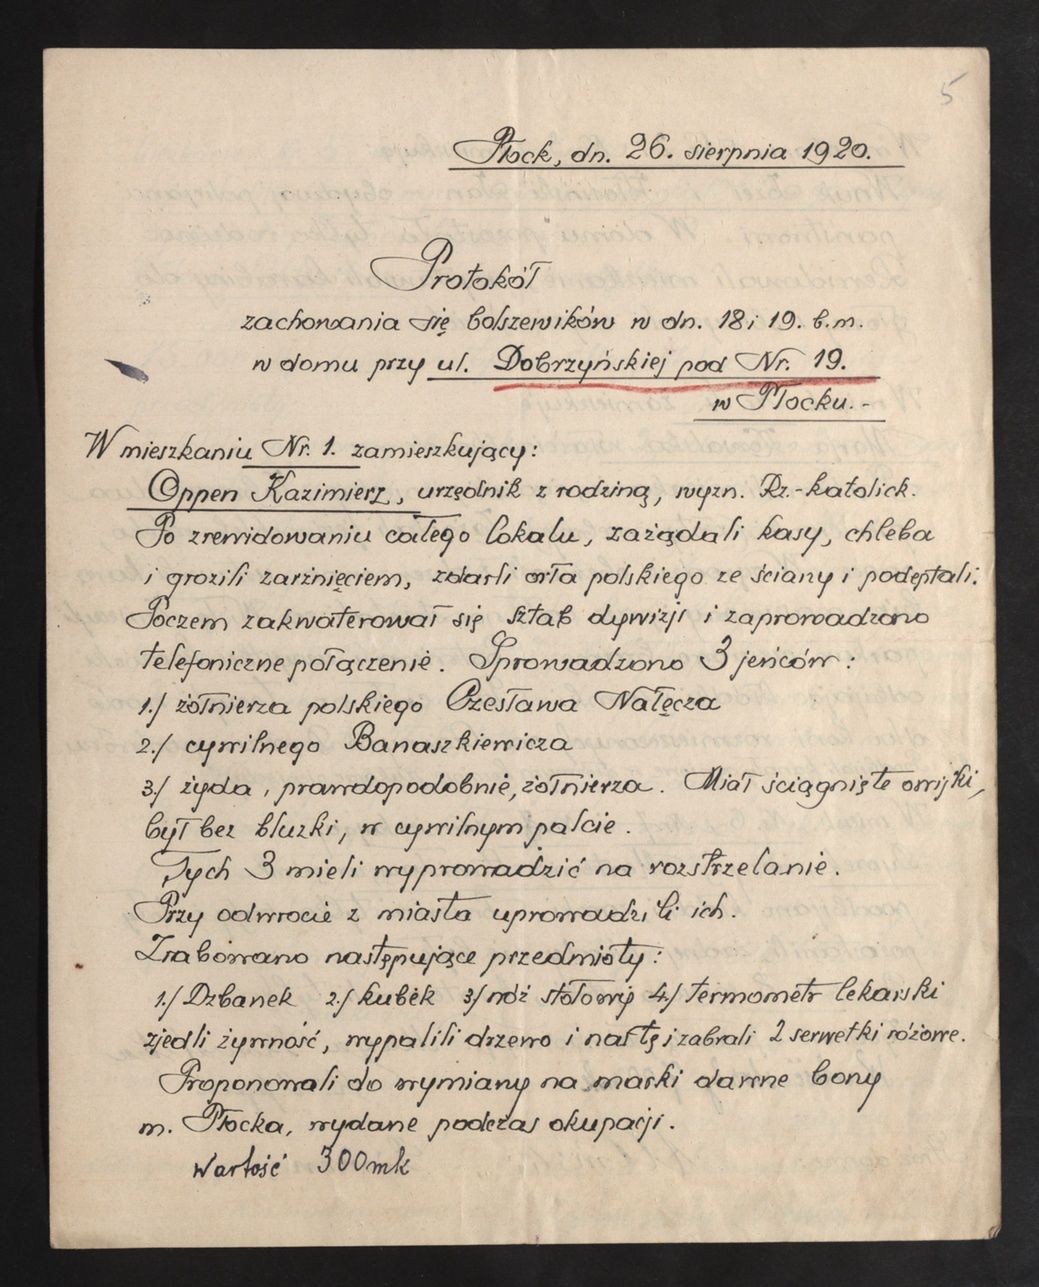 5
Płock, dn. 26. sierpnia 1920.
Protokół
zachowania się bolszewików w dn. 18 i 19. b.m.
w domu przy ul. Dobrzyńskiej pod Nr. 19.
w Płocku.-
W mieszkaniu Nr. 1. zamieszkujący:
Oppen Kazimierz, urzędnik z rodziną, wyzn. Rz.-katolick.
Po zrewidowaniu całego lokalu, zażądali kasy, chleba
i grozili zarżnięciem, zdarli orła polskiego ze ściany i podeptali.
Poczem zakwaterował się sztab dywizji i zaprowadzono
telefoniczne połączenie. Sprowadzono 3 jeńców:
1./ żołnierza polskiego Czesława Nałęcza
2./ cywilnego Banaszkiewicza
3./ żyda, prawdopodobnie, żołnierza. Miał ściągnięte owijki,
był bez bluzki, w cywilnym palcie.
Tych 3 mieli wyprowadzić na rozstrzelanie.
Przy odwrocie z miasta uprowadzili ich.
Zrabowano następujące przedmioty:
1./ Dzbanek 2./ kubek 3/ nóż stołowy 4/ termometr lekarski
zjedli żywność, wypalili drzewo i naftę i zabrali 2 serwetki różowe.
Proponowali do wymiany na marki dawne bony
m. Płocka, wydane podczas okupacji.
Wartość 300 mk